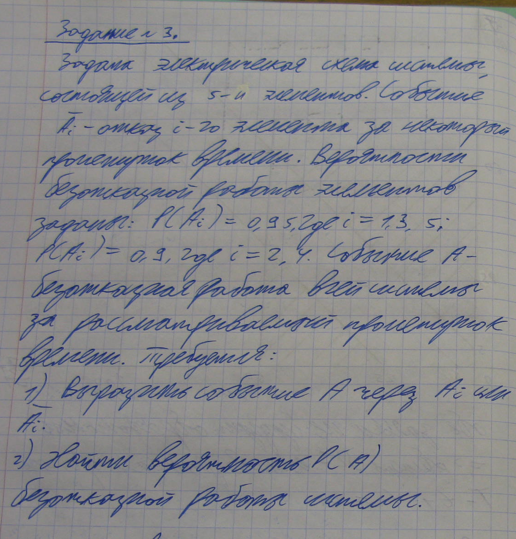 Задание №3.
Задана электрическая схема системы,
состоящей из 5-и элементов. Событие
Ai - отказ i-го элемента за некоторый
промежуток времени. Вероятности
безотказной работы элементов
заданы: P(Ai) = 0,95, где i = 1,3, 5;
P(Ai) = 0,9, где i = 2, 4. Событие A -
безотказная работа всей системы
за рассматриваемый промежуток
времени. Требуется:
1) Выразить событие A через Ai или
A̅i.
2) Найти вероятность P(A)
безотказной работы системы.